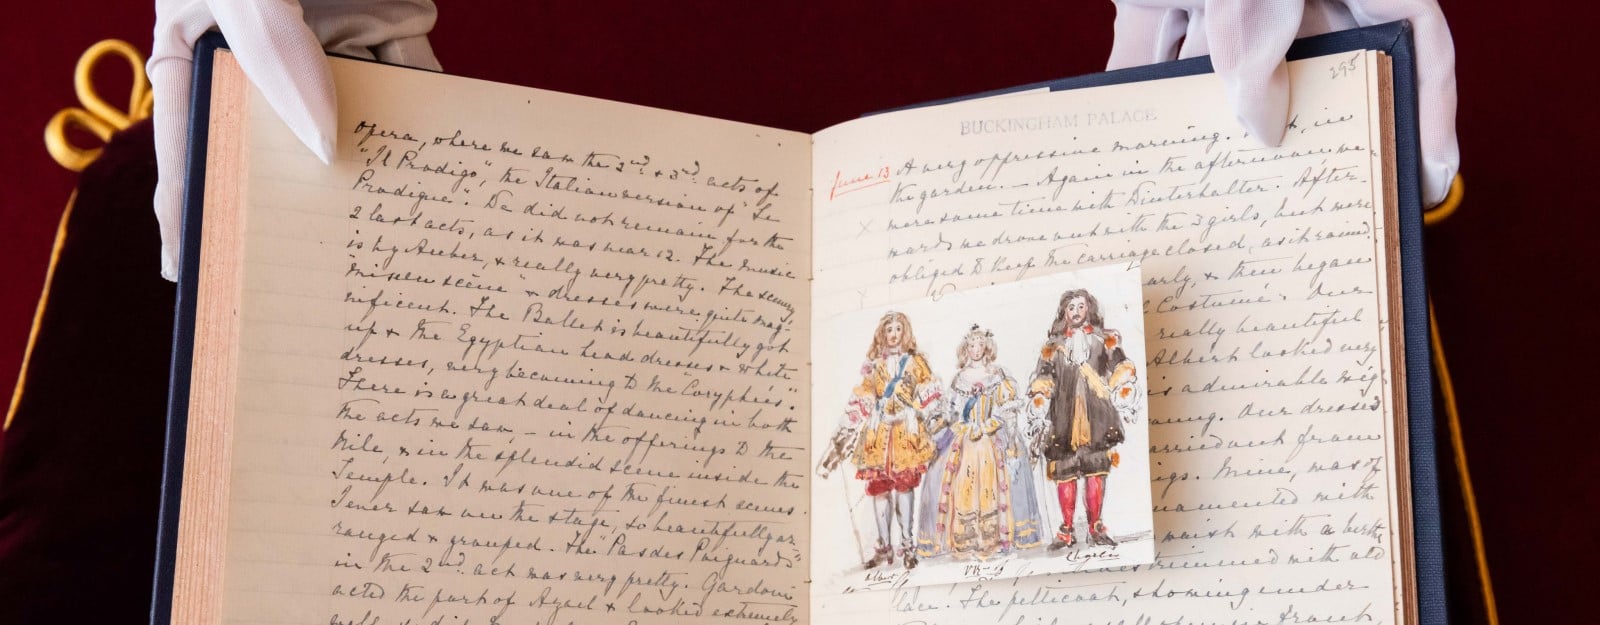 opera, where we saw the 2nd. & 3rd. acts of
"Il Prodigo", the Italian version of "Le
Prodigue". We did not remain for the
2 last acts, as it was near 12. The music
is by Auber, & really very pretty. The scenery,
"mise en scène" & dresses were quite mag-
nificent. The Ballet is beautifully got
up & the Egyptian head dresses & white
dresses, very becoming to the "Coryphées".
There is a great deal of dancing in both
the acts we saw, – in the offerings to the
Nile, & in the splendid scene inside the
Temple. It was one of the finest scenes
I ever saw on the stage, so beautifully ar-
ranged & grouped. The "Pas des Poignards"
in the 2nd. act was very pretty. Gardoni
acted the part of Azael & looked extremely
well,
295
BUCKINGHAM PALACE
June 13
A very oppressive morning. in
the garden. – Again in the afternoon we
were some time with Winterhalter. After-
wards we drove out with the 3 girls, but were
obliged to keep the carriage closed, as it rained.
early, & then began
Costumé. Our
really beautiful
Albert looked very
is admirable wig
Our dresses
carried out from
Mine, was of
ornamented with
waist with a
trimmed with old
lace. The petticoat, showing under
Albert
VR
Charles